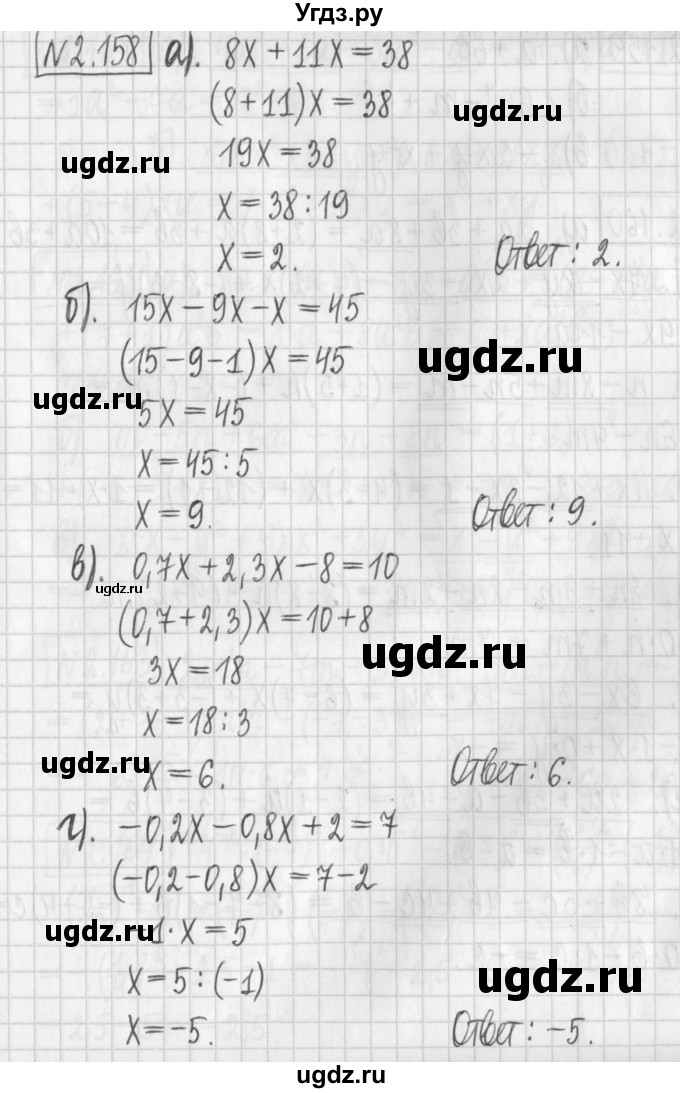 Угдз.ру
N 2.158 а). 8x + 11x = 38
(8+11)x = 38
ugdz.ru
19x = 38
ugdz.ru
x = 38 : 19
x = 2. Ответ: 2.
б). 15x − 9x − x = 45
(15−9−1)x = 45
ugdz.ru
ugdz.ru
5x = 45
x = 45 : 5
x = 9. Ответ: 9.
в). 0,7x + 2,3x − 8 = 10
ugdz.ru
(0,7+2,3)x = 10+8
ugdz.ru
3x = 18
x = 18 : 3
ugdz.ru
x = 6. Ответ: 6.
г). −0,2x − 0,8x + 2 = 7
(−0,2−0,8)x = 7−2
ugdz.ru
1 · x = 5
x = 5 : (−1)
ugdz.ru
x = −5. Ответ: −5.
ugdz.ru